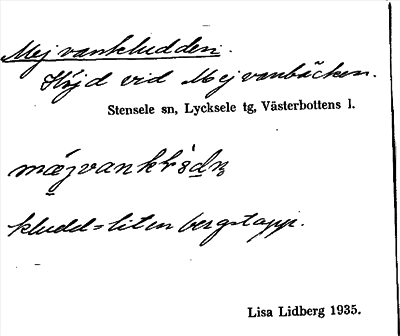 Mejvankludden.
Höjd vid Mejvanbäcken.
Stensele sn, Lycksele tg, Västerbottens l.
kludd = liten bergstapp.
Lisa Lidberg 1935.